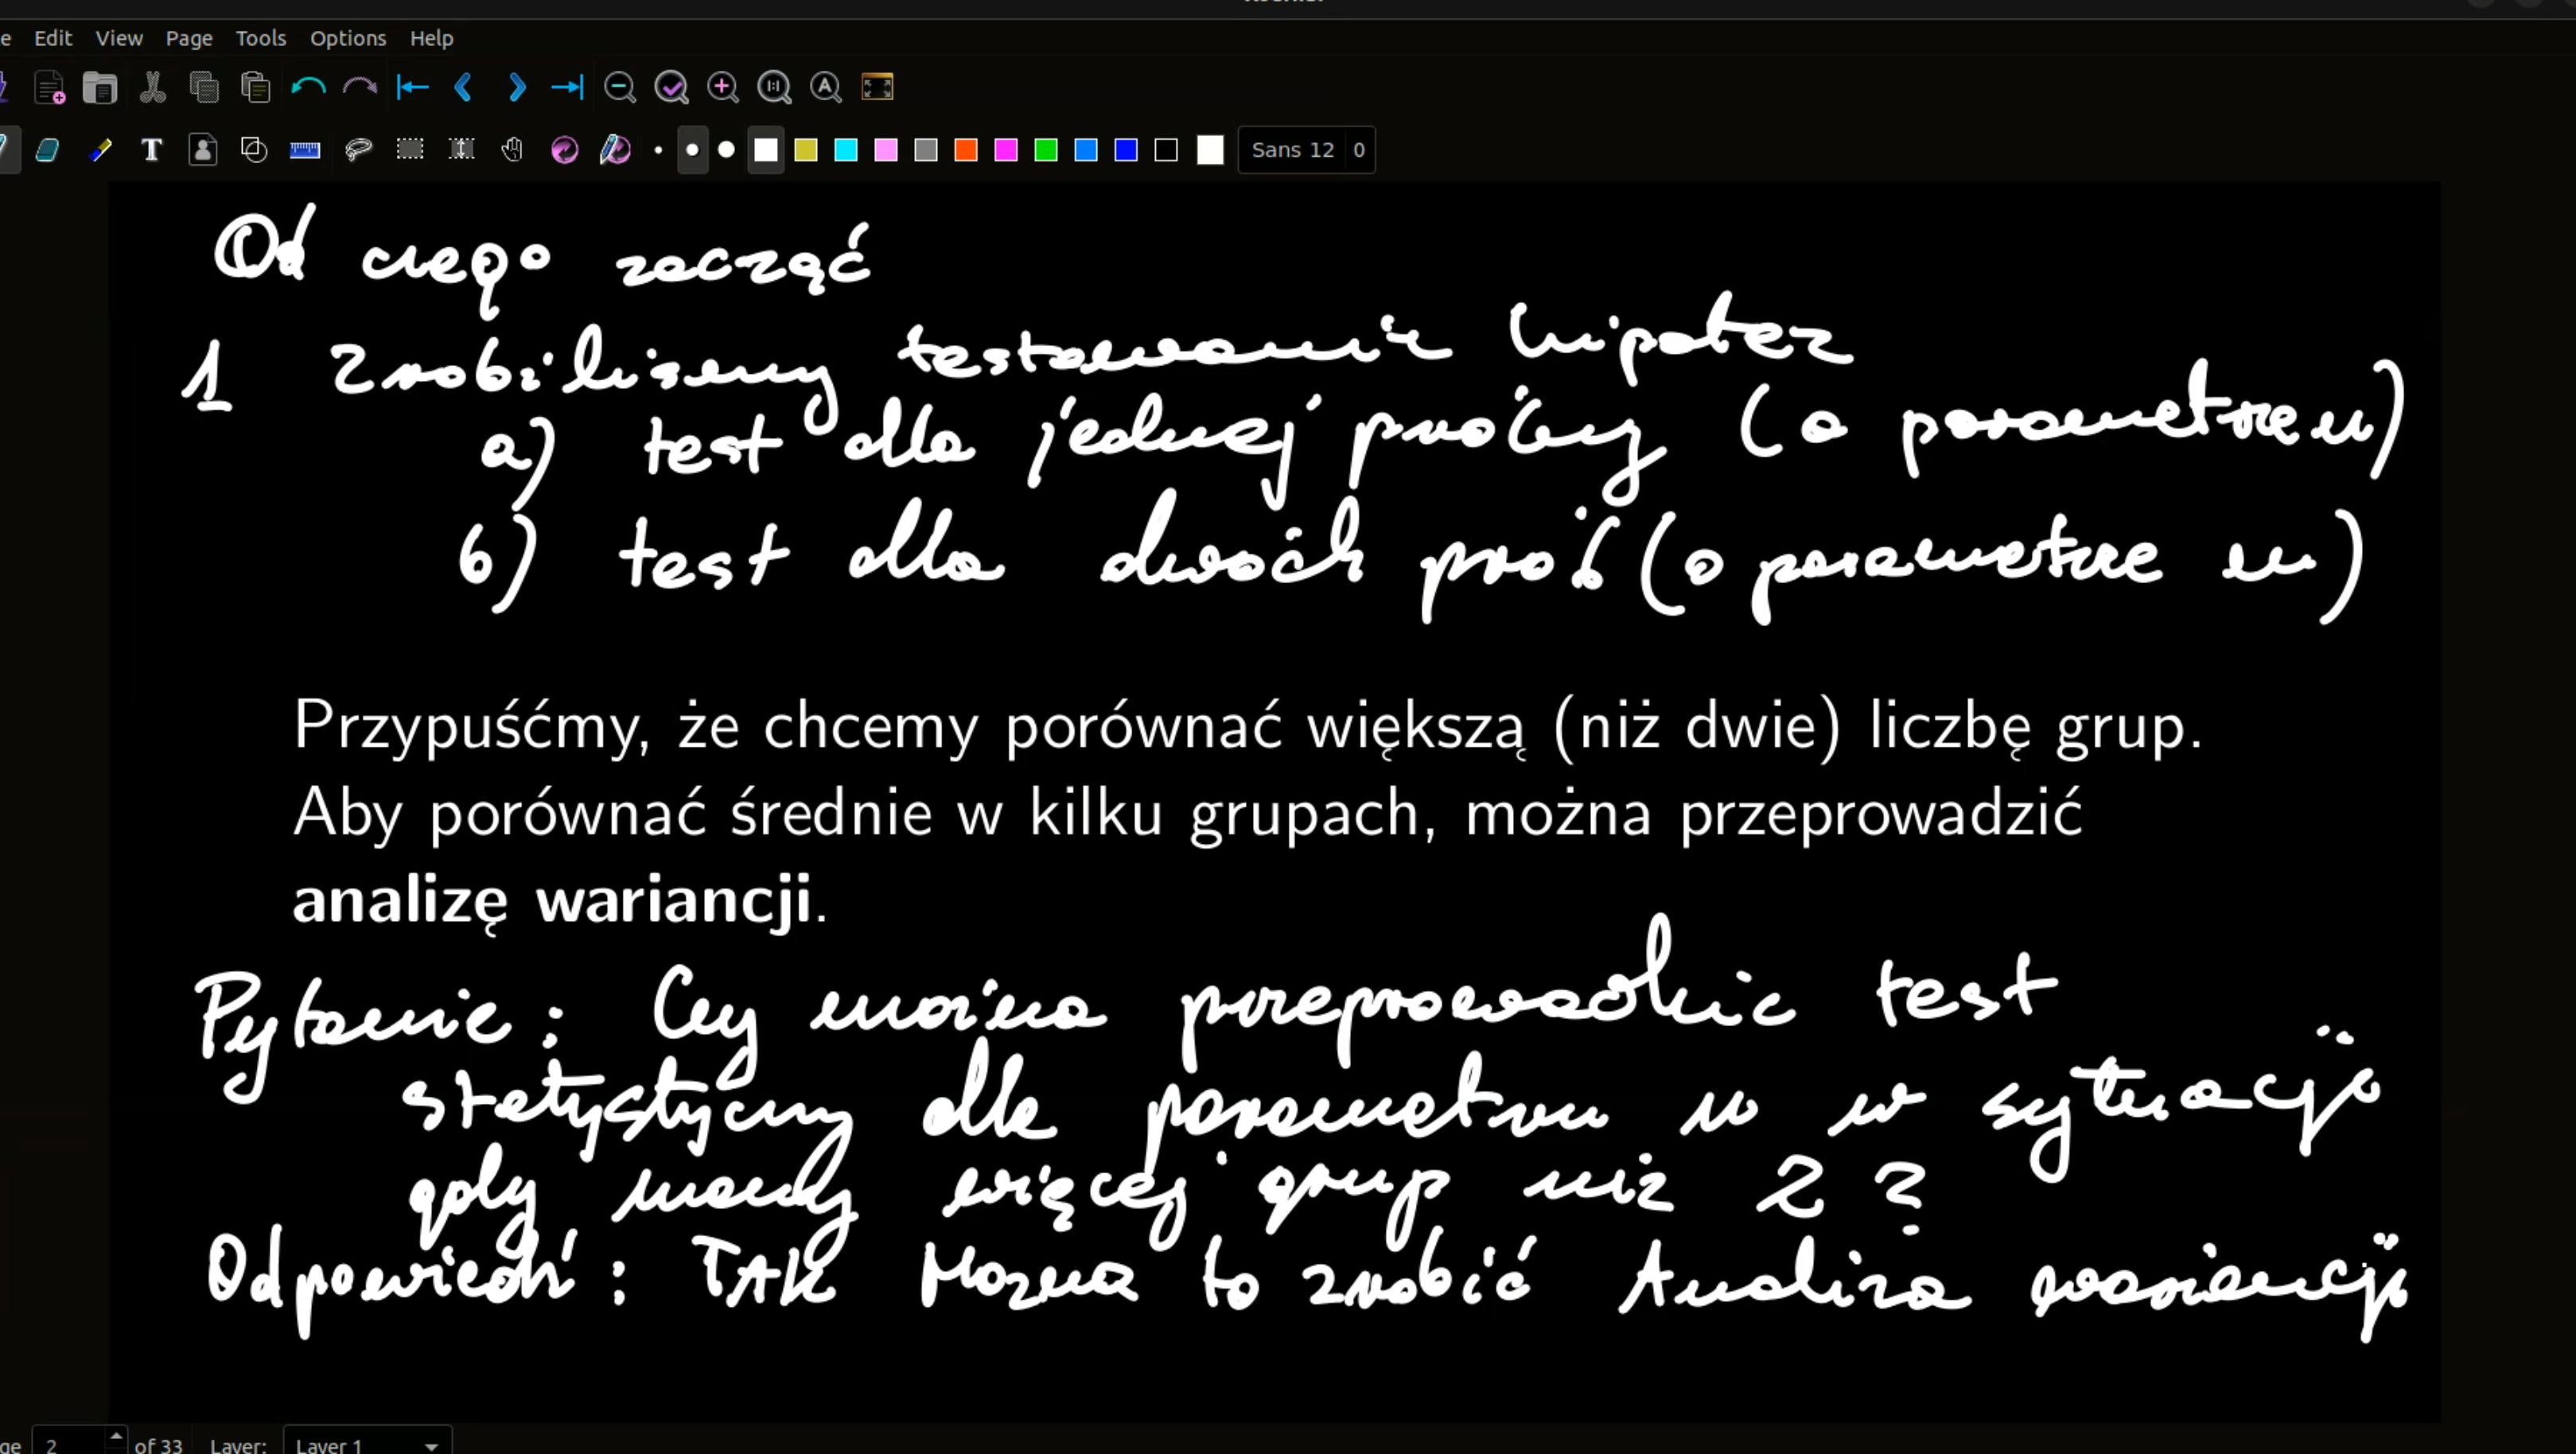 e Edit View Page Tools Options Help
Sans 12 0
Od czego zacząć
1 Zrobiliśmy testowanie hipotez
a) test dla jednej próby (o parametrze m)
b) test dla dwóch prób (o parametrze m)
Przypuśćmy, że chcemy porównać większą (niż dwie) liczbę grup.
Aby porównać średnie w kilku grupach, można przeprowadzić
analizę wariancji.
Pytanie: Czy można przeprowadzic test
statystyczny dla parametru m w sytuacji
gdy mamy więcej grup niż 2?
Odpowiedź: TAK Można to zrobić Analiza wariancji
ge 2 of 33 Layer: Layer 1